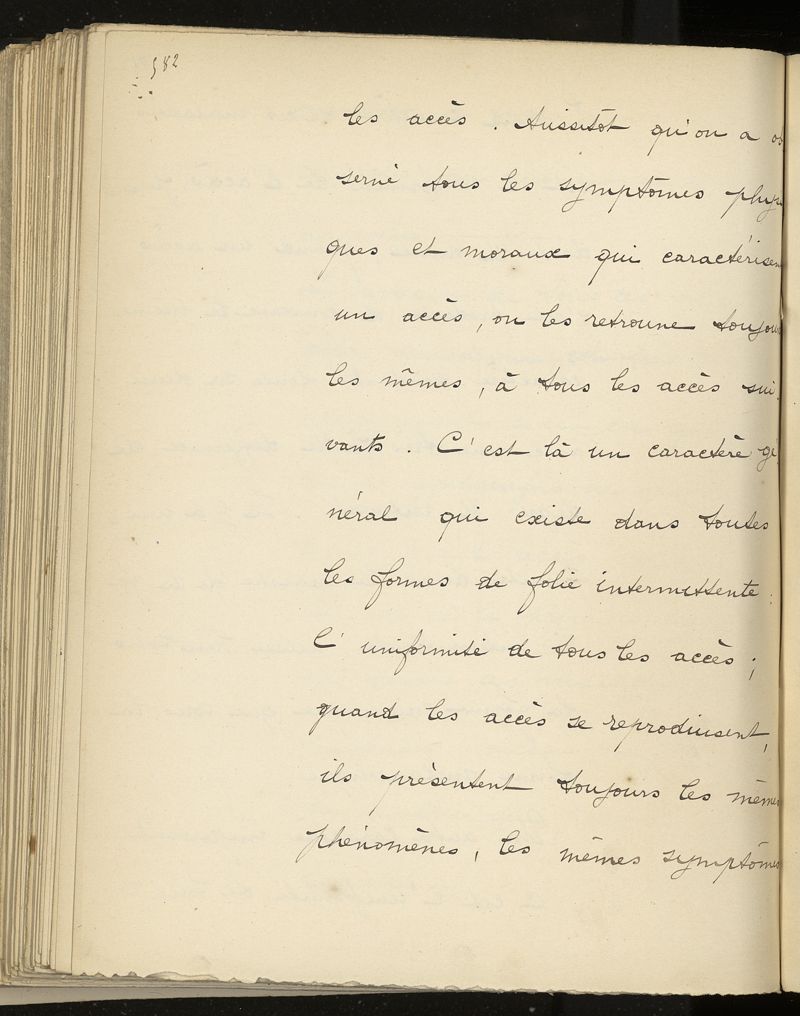 582
les accès. Aussitôt qu'on a ob
servé tous les symptômes physi
ques et moraux qui caractérisen
un accès, on les retrouve toujou
les mêmes, à tous les accès sui
vants. C'est là un caractère gé
néral qui existe dans toutes
les formes de folie intermittente:
l'uniformité de tous les accès;
quand les accès se reproduisent,
ils présentent toujours les mêmes
phénomènes, les mêmes symptômes